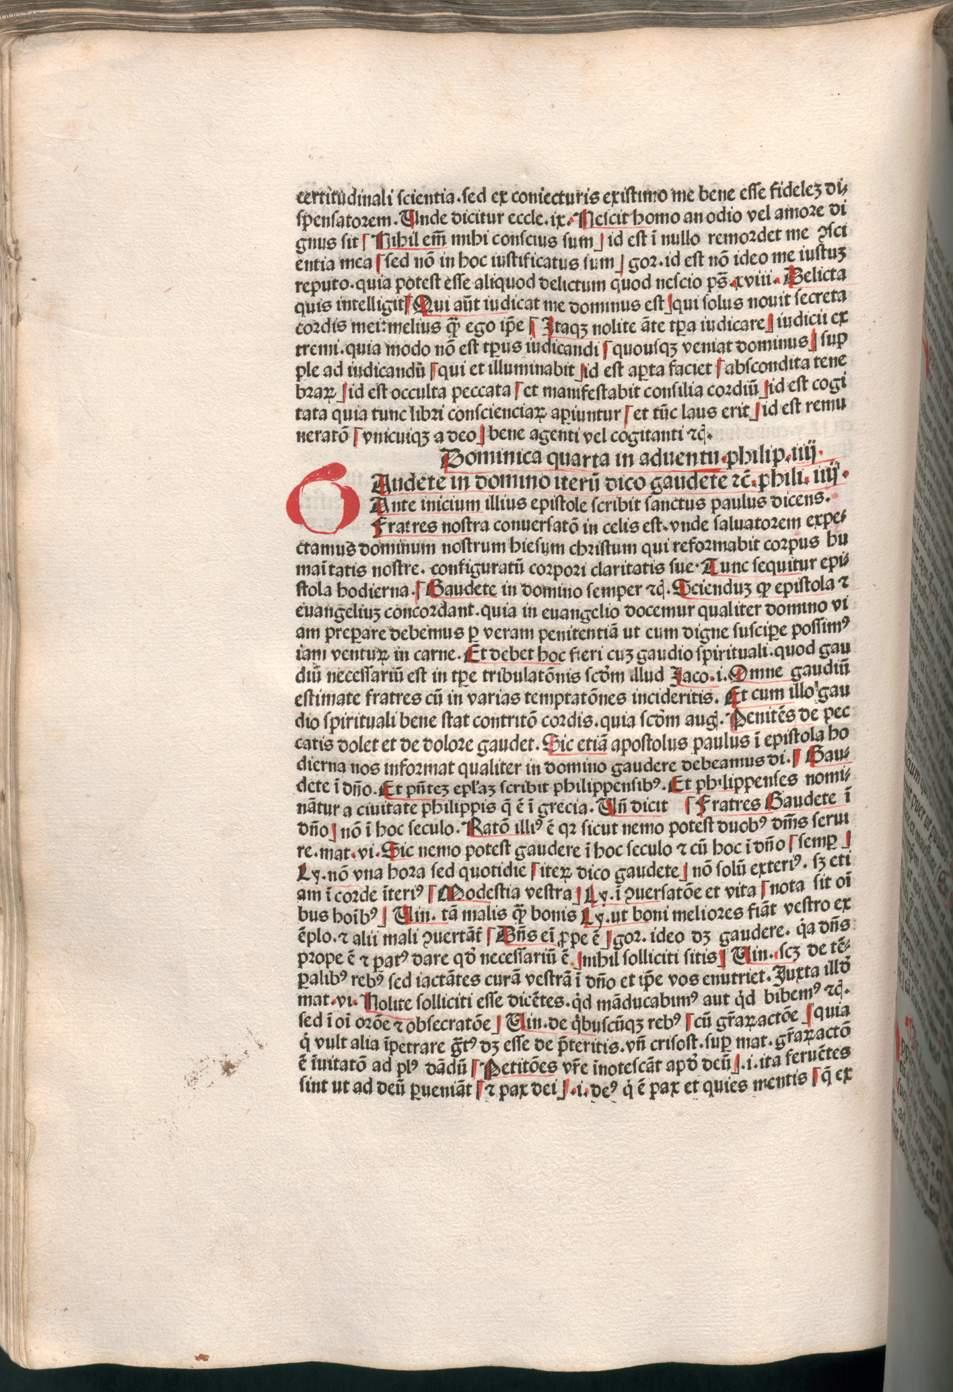 certitudinali scientia.sed ex coniecturis existimo me bene esse fidelez di⸗
spensatorem. Unde dicitur eccle.ix. Nescit homo an odio vel amore di
gnus sit Nihil em̄ mihi conscius sum id est ī nullo remordet me ꝯsci
entia mea sed nō in hoc iustificatus sum gor.id est nō ideo me iustuz
reputo.quia potest esse aliquod delictum quod nescio ps̄.xviii. Delicta
quis intelligit Qui aūt iudicat me dominus est qui solus nouit secreta
cordis mei:melius qꝫ ego ip̄e Itaqꝫ nolite āte tp̄a iudicare iudicii ex
tremi.quia modo nō est tp̄us iudicandi quousqꝫ veniat dominus sup
ple ad iudicandū qui et illuminabit id est aꝑta faciet abscondita tene
braꝝ id est occulta peccata et manifestabit consilia cordiū id est cogi
tata quia tunc libri conscienciaꝝ aꝑiuntur et tūc laus erit id est remu
neratō vnicuiqꝫ a deo bene agenti vel cogitanti ⁊cͣ.
Dominica quarta in aduentu.philip.iiij.
GAudete in domino iterū dico gaudete ⁊c̄.phili.iiij.
Ante inicium illius epistole scribit sanctus paulus dicens.
Fratres nostra conuersatō in celis est.vnde saluatorem expe⸗
ctamus dominum nostrum hiesum christum qui reformabit corpus hu
maītatis nostre.configuratū corpori claritatis sue.Tunc sequitur epi⸗
stola hodierna. Gaudete in domino semper ⁊cͣ. Scienduz ꝙ epistola ⁊
euangeliuz concordant.quia in euangelio docemur qualiter domino vi
am preparare debemus ꝑ veram penitentiā ut eum digne suscipe possimꝰ
iam ventuꝝ in carne. Et debet hoc fieri cuz gaudio spirituali.quod gau
diū necessariū est in tꝑe tribulatōnis scd̄m illud Jaco.i. Omne gaudiū
estimate fratres cū in varias temptatōnes incideritis. Et cum illo gau
dio spirituali bene stat contritō cordis.quia scd̄m augͣ. Penitēs de pec
catis dolet et de dolore gaudet. Sic etiā apostolus paulus ī epistola ho
dierna nos informat qualiter in domino gaudere debeamus di. Gau⸗
dete ī dn̄o. Et pn̄tez epl̄az scribit philippensibꝰ. Et philippenses nomi⸗
nātur a ciuitate philippis q̄ ē ī grecia. Un̄ dicit Fratres Gaudete ī
dn̄o nō ī hoc seculo. Ratō illiꝰ ē qꝛ sicut nemo potest duobꝰ dn̄is serui
re.mat.vi. Sic nemo potest gaudere ī hoc seculo ⁊ cū hoc ī dn̄o semꝑ
Ly.nō vna hora sed quotidie iteꝝ dico gaudete nō solū exteriꝰ.sꝫ eti
am ī corde īteriꝰ Modestia vestra Ly.ī ꝯuersatōe et vita nota sit oī
bus hoībꝰ Uin. tā malis qꝫ bonis Ly.ut boni meliores fiāt vestro ex
ēplo.⁊ alii mali ꝯuertāt̄ Dn̄s ei ꝓpe ē gor. ideo dꝫ gaudere. qͣa dn̄s
prope ē ⁊ paratꝰ dare qd̄ necessariū ē nihil solliciti sitis Uin. scꝫ de tē⸗
ꝑalibꝰ rebꝰ sed iactātes curā vestrā ī dn̄o et ip̄e vos enutriet. Juxta illd̄
mat.vi. Nolite solliciti esse dicētes.qͥd māducabimꝰ aut qͥd bibemꝰ ⁊cͣ.
sed ī oī orōe ⁊ obsecratōe Uin.de qͥbuscūqꝫ rebꝰ cū gr̄aꝝactōe quia
qͥ vult alia īpetrare gr̄tꝰ dꝫ esse de p̄teritis.vn̄ crisost.suꝑ mat.gr̄aꝝactō
ē īuitatō ad plꝰ dādū Petitōes vr̄e īnotescāt apd̄ deū .i.ita feruētes
sint ut ad deū ꝑueniāt ⁊ pax dei .i.deꝰ qͥ ē pax et quies mentis q̄ ex